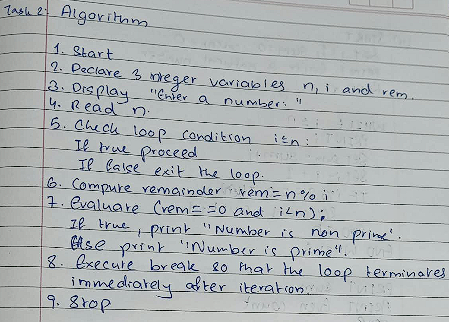 Task 2: Algorithm
1. Start
2. Declare 3 integer variables n, i and rem.
3. Display "Enter a number: "
4. Read n.
5. Check loop condition i≤n:
If true proceed
If false exit the loop.
6. Compute remainder rem = n % i
7. Evaluate (rem==0 and i<n);
If true, print "Number is non prime'.
Else print "Number is prime".
8. Execute break so that the loop terminates
immediately after iteration
9. Stop